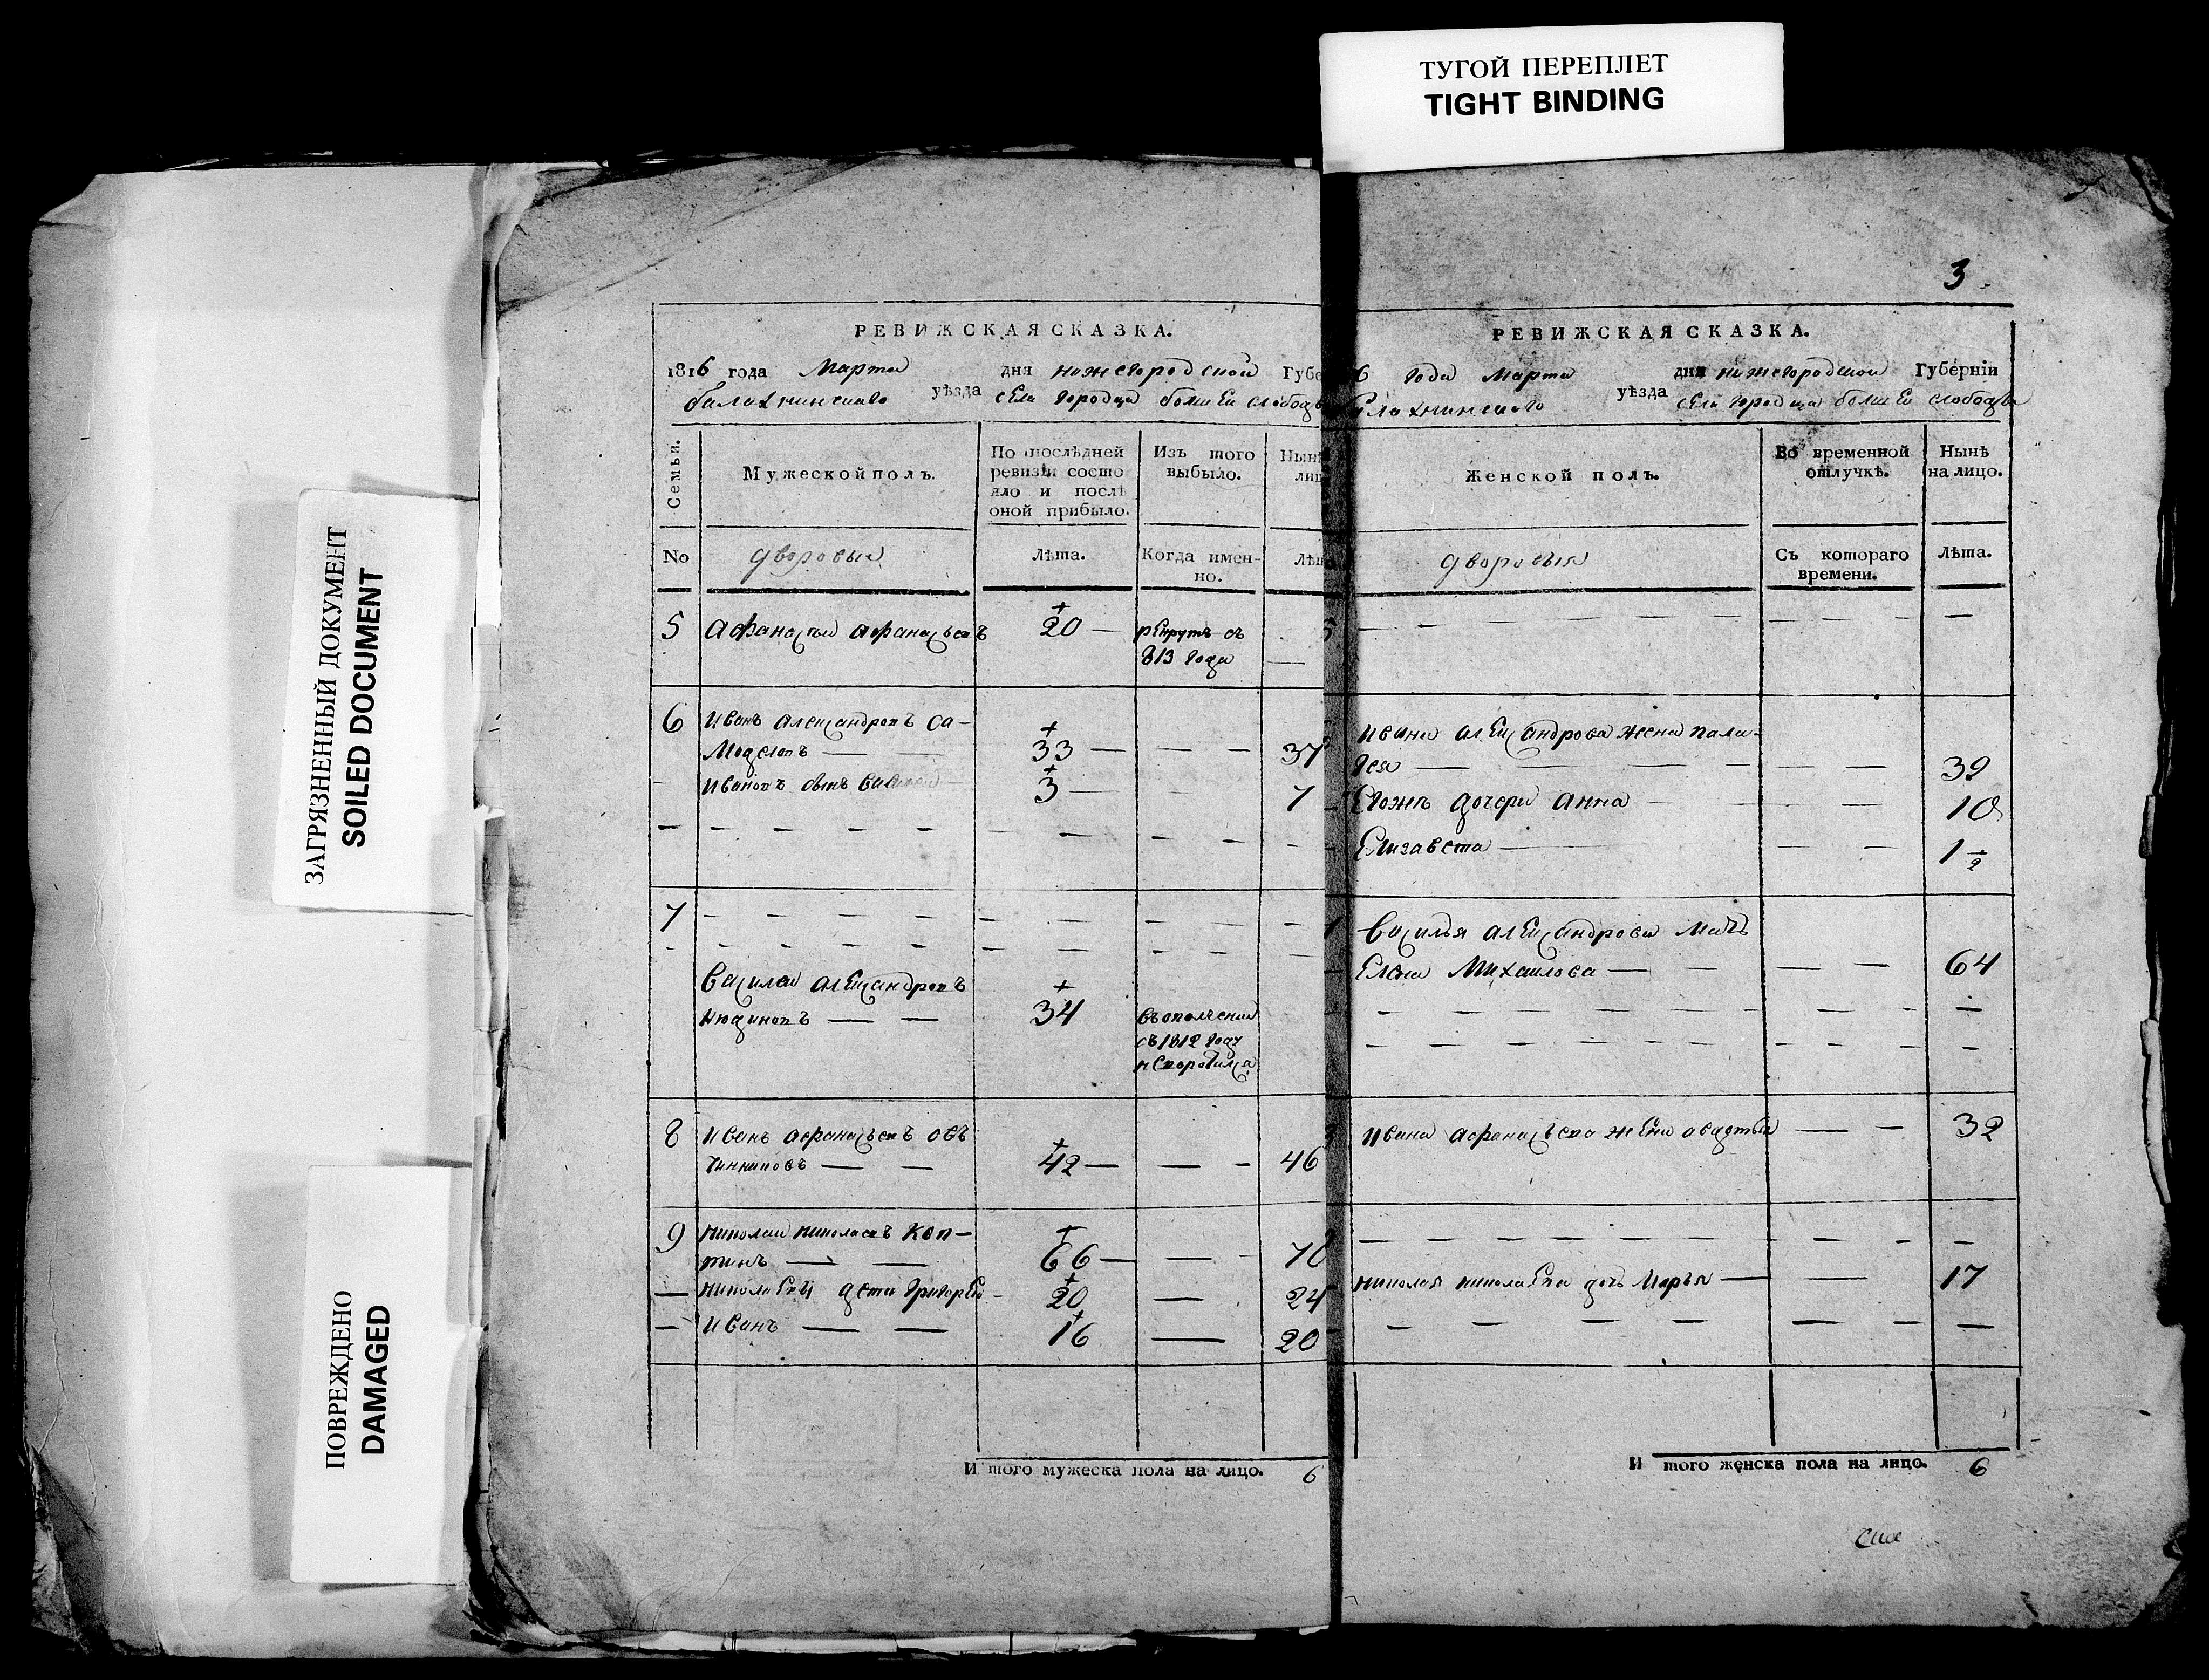 ТУГОЙ ПЕРЕПЛЕТ
TIGHT BINDING
ЗАГРЯЗНЕННЫЙ ДОКУМЕНТ
SOILED DOCUMENT
ПОВРЕЖДЕНО
DAMAGED
РЕВИЖСКАЯ СКАЗКА.
1816 года Марта дня нижегородской Губе
балахнинскаго уѣзда села городца болшей слободы
Семьи.
Мужеской полъ.
По послѣдней
ревизіи состо
яло и послѣ
оной прибыло.
Изъ того
выбыло.
Нынѣ
лиц
No
дворовыя
Лѣта.
Когда имен-
но.
Лѣт
5 Афанасей афанасьевъ 20 рекрутъ въ
813 года
6 Иванъ александровъ са-
модѣловъ 33 37
Ивановъ сынъ василей 3 7
7
Василей александровъ
Нюдиновъ 34 въ ополчении
съ 1812 году
не воротился
8 Иванъ афанасьевъ ов
чинниковъ 42 46
9 николай николаевъ Коп-
тинъ 66 70
николаевы дети григорей 20 24
Иванъ 16 20
И того мужеска пола на лицо. 6
3
РЕВИЖСКАЯ СКАЗКА.
6 года марта дня нижегородской Губерніи
балахнинскаго уѣзда села городца болшей слободы
Женской полъ.
Во временной
отлучкѣ.
Нынѣ
на лицо.
дворовыя
Съ котораго
времени.
Лѣта.
Ивана александрова жена пала-
гея 39
Евожъ дочери анна 10
Елизавета 1 1/2
7 Василья александрова мать
Елена Михаилова 64
Ивана афанасьева жена авдотья 32
николая николаева дочь марья 17
И того женска пола на лицо. 6